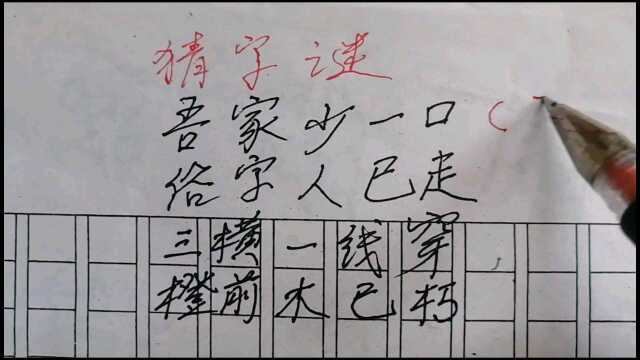 猜字谜
吾家少一口（
俗字人已走
三横一线穿
橙前木已朽